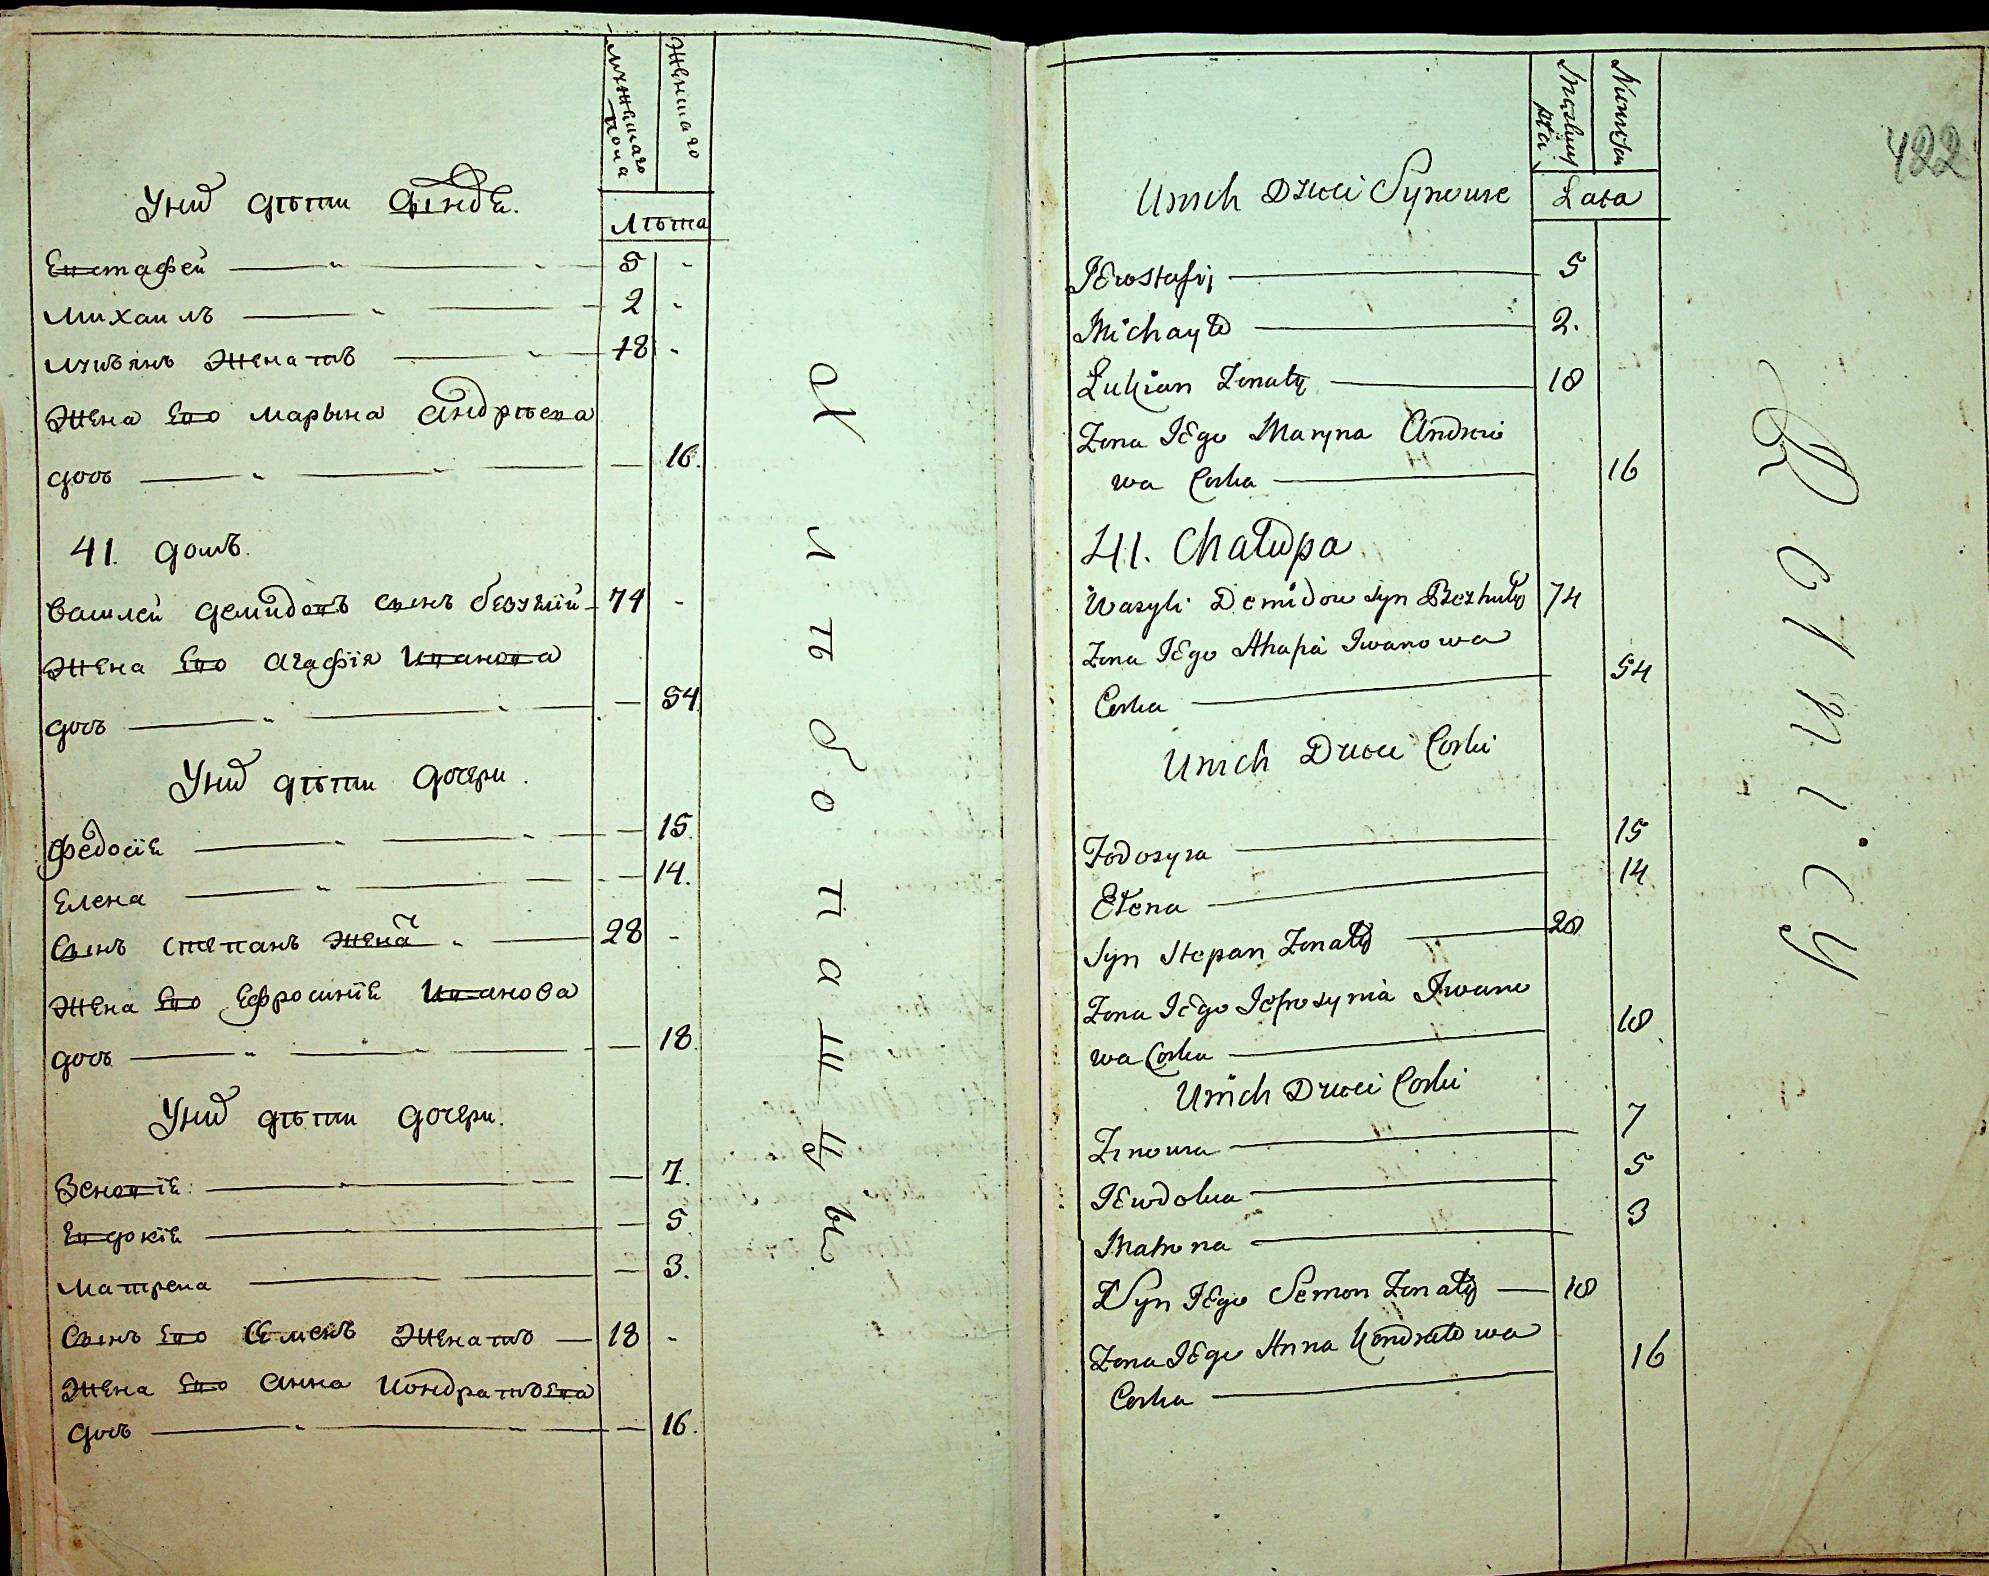 мужескаго пола
женскаго
Лѣта
У них дѣти сынове.
Евстафей 5 -
Михаилъ 2 -
Лукьянъ женатъ 18 -
жена Его Марына Андрѣева
дочь — 16.
41. домъ.
Василей Демидовъ сынъ безуглій 74 -
жена Его Агафія Иванова
дочь — 54
У них дѣти дочери.
Федосіе — 15.
Елена — 14.
Сынъ Степанъ жена т 28 -
жена Его Ефросиніе Иванова
дочь — 18
У них дѣти дочери.
Зеновіе — 7.
Евдокіе — 5.
Матрена — 3.
Сынъ Его Семенъ женатъ — 18 -
жена Его Анна Кондратьева
дочь — 16.
Хлѣбопашцы
422
Męskiey płci
Niewiescey
Lata
U nich Dzieci Synowie
JEwstafij 5
Michayło 2.
Łukian Żonaty 18
Żona JEgo Maryna Andrei
wa Corka 16
41. Chałupa
Wasyli Demidow syn Bezhuły 74
Żona JEgo Ahafia Iwanowa
Corka 54
U nich Dzieci Corki
Fodosyia 15
Ełena 14
Syn Stepan Żonaty 28
Żona JEgo Jefrosynia Iwano
wa Corka 18
U nich Dzieci Corki
Zinowia 7
JEwdokia 5
Matrona 3
Syn JEgo Semon Żonaty — 18
Żona JEgo Anna Kondratowa
Corka 16
Rolnicy